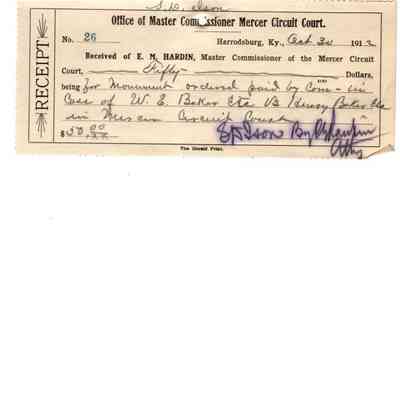 S. D. Ison
Office of Master Commissioner Mercer Circuit Court.
No. 26 Harrodsburg, Ky., Oct 30 1912
Received of E. M. HARDIN, Master Commissioner of the Mercer Circuit
Court, Fifty Dollars,
being for Monument ordered paid by Com in
Case of W. E. Baker &c Vs Henry Baker &c
in Mercer Circuit Court
$50.00 S D Ison By
Atty
The Herald Print.
RECEIPT